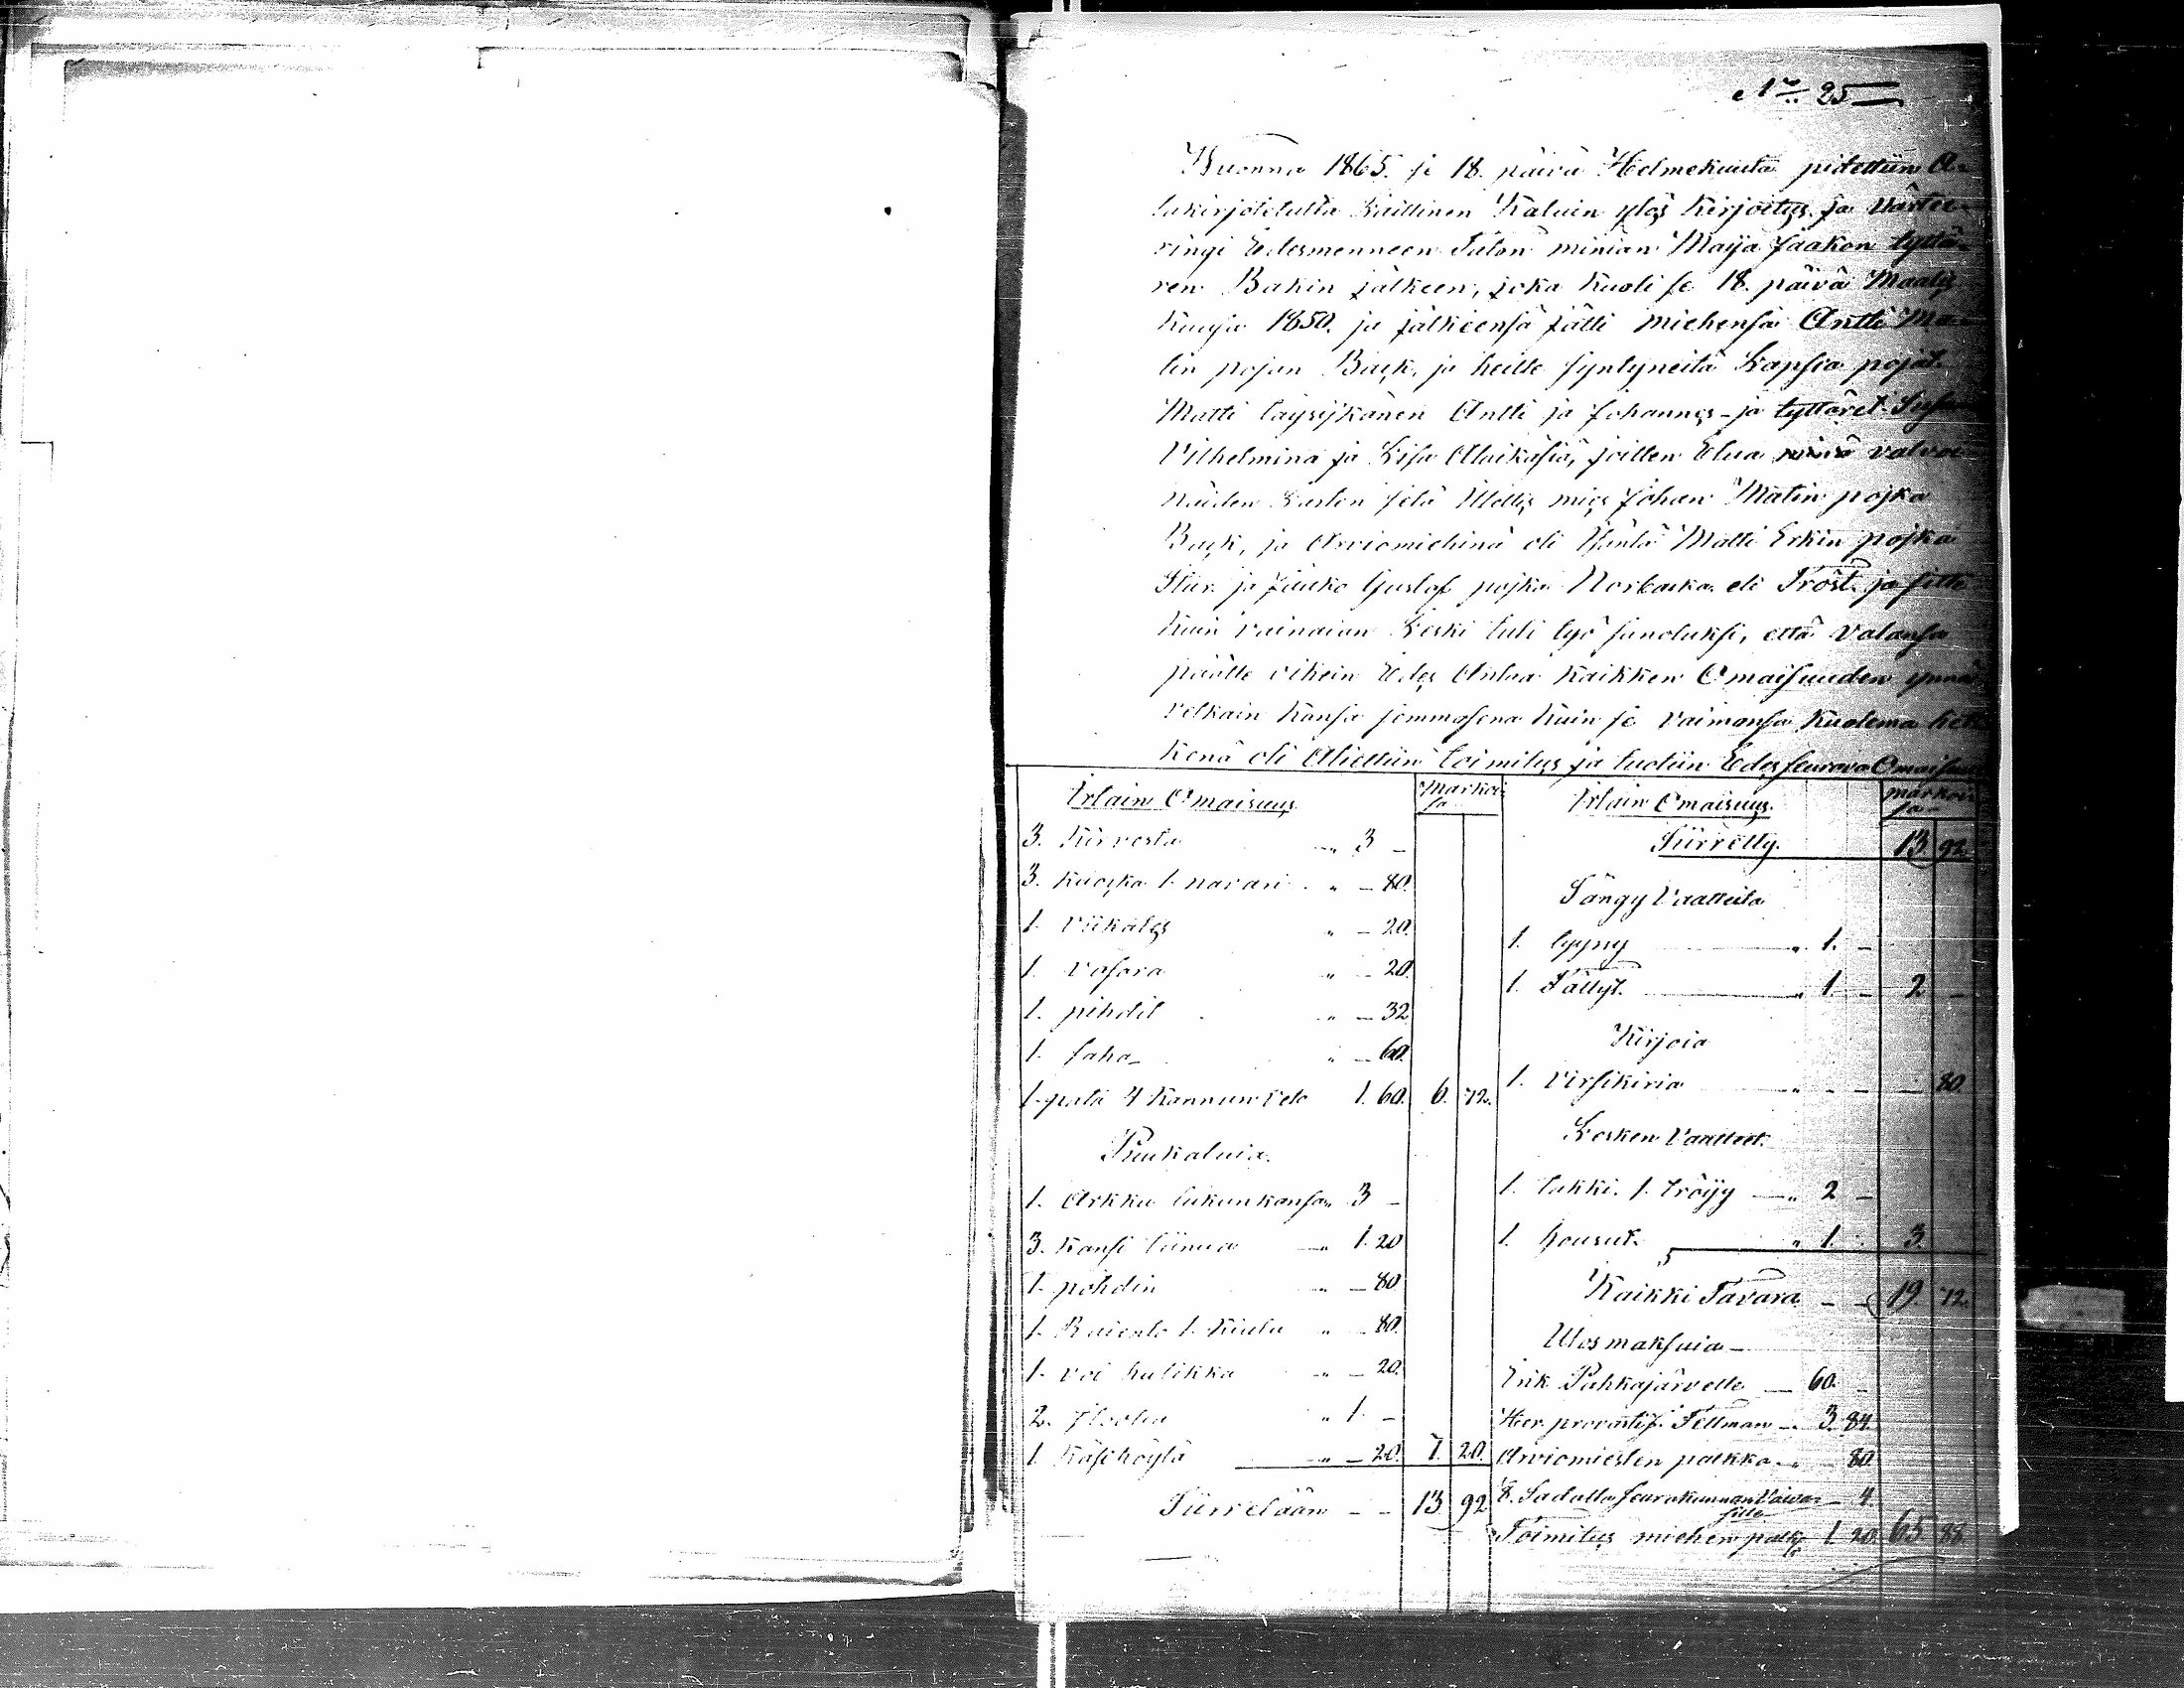 No 25
Vuonna 1865. se 18. päivä Helmekuuta pidettiin A-
lakirjotetulta Laillinen Kaluin ylös kirjoitus ja Värtee-
ringi Edesmenneen Talon miniän Maija Jaakon tyttä-
ren Bakin jälkeen, joka kuoli se 18. päivä Maalis
kuusa 1850. ja jälkeensä jätti miehensä Antti Ma-
tin pojan Back, ja heille syntyneitä Lapsia pojat
Matti täysijkänen Antti ja Johannes - ja tyttäret
Vilhelmina ja Lisa Alaikäsiä, joitten Etua valvoi
näiden Lasten setä Johan Matin pojka
Back, ja Arviomiehinä oli Matti Erkin pojka
ja Jaako Gustaf pojka eli Tröst. ja sitte
kuin vainaian Leski tuli työ sanotuksi, että valansa
päälle oikein Edes Antaa kaikken Omaisuuden ynnä
velkain kansa semmosena kuin se vaimonsa kuolema het-
kenä oli Aliettiin toimitus ja tuotiin Edes seurava Omaisuu
Irtain Omaisuus Markoi
sa
3. Kirvesta " 3 -
3. kuoska 1. navari " - 80.
1. viikates " - 20.
1. vasara " - 20.
1. pihdit " - 32
1. saha " - 60.
1. pata 4 kannun veto 1. 60. 6. 72.
Puukaluia.
1. Arkku lukun kansa " 3 -
3. Kansi tiinua " 1. 20
1. pöhdin " - 80
1. 1. kiulu " - 80.
1. voi halikka " - 20.
2. " 1. -
1. käsihöylä " - 20. 7. 20.
Siirretään - - 13 92
Irtain Omaisuus. markoi
sa
Siirretty. 13 92
Sängy Vaatteita
1. tyyny " 1. -
1. Fällyt. " 1. - 2 -
Kirjoia
1. virsikiria " - - - 80.
Lesken Vaatteet.
1. takki. 1. tröijy " 2 -
1. housut. " 1. - 3.
Kaikki Tavara - - 19. 72.
Ulos maksuia -
Erik Pahkajärvelle 60. -
Her. provasti f. Fellman - 3. 84.
Arviomiesten palkka " - 80
8. Sadalta seurakunnan Vaivai 4
sille
Toimitus miehen palk 1. 20. 65 88.